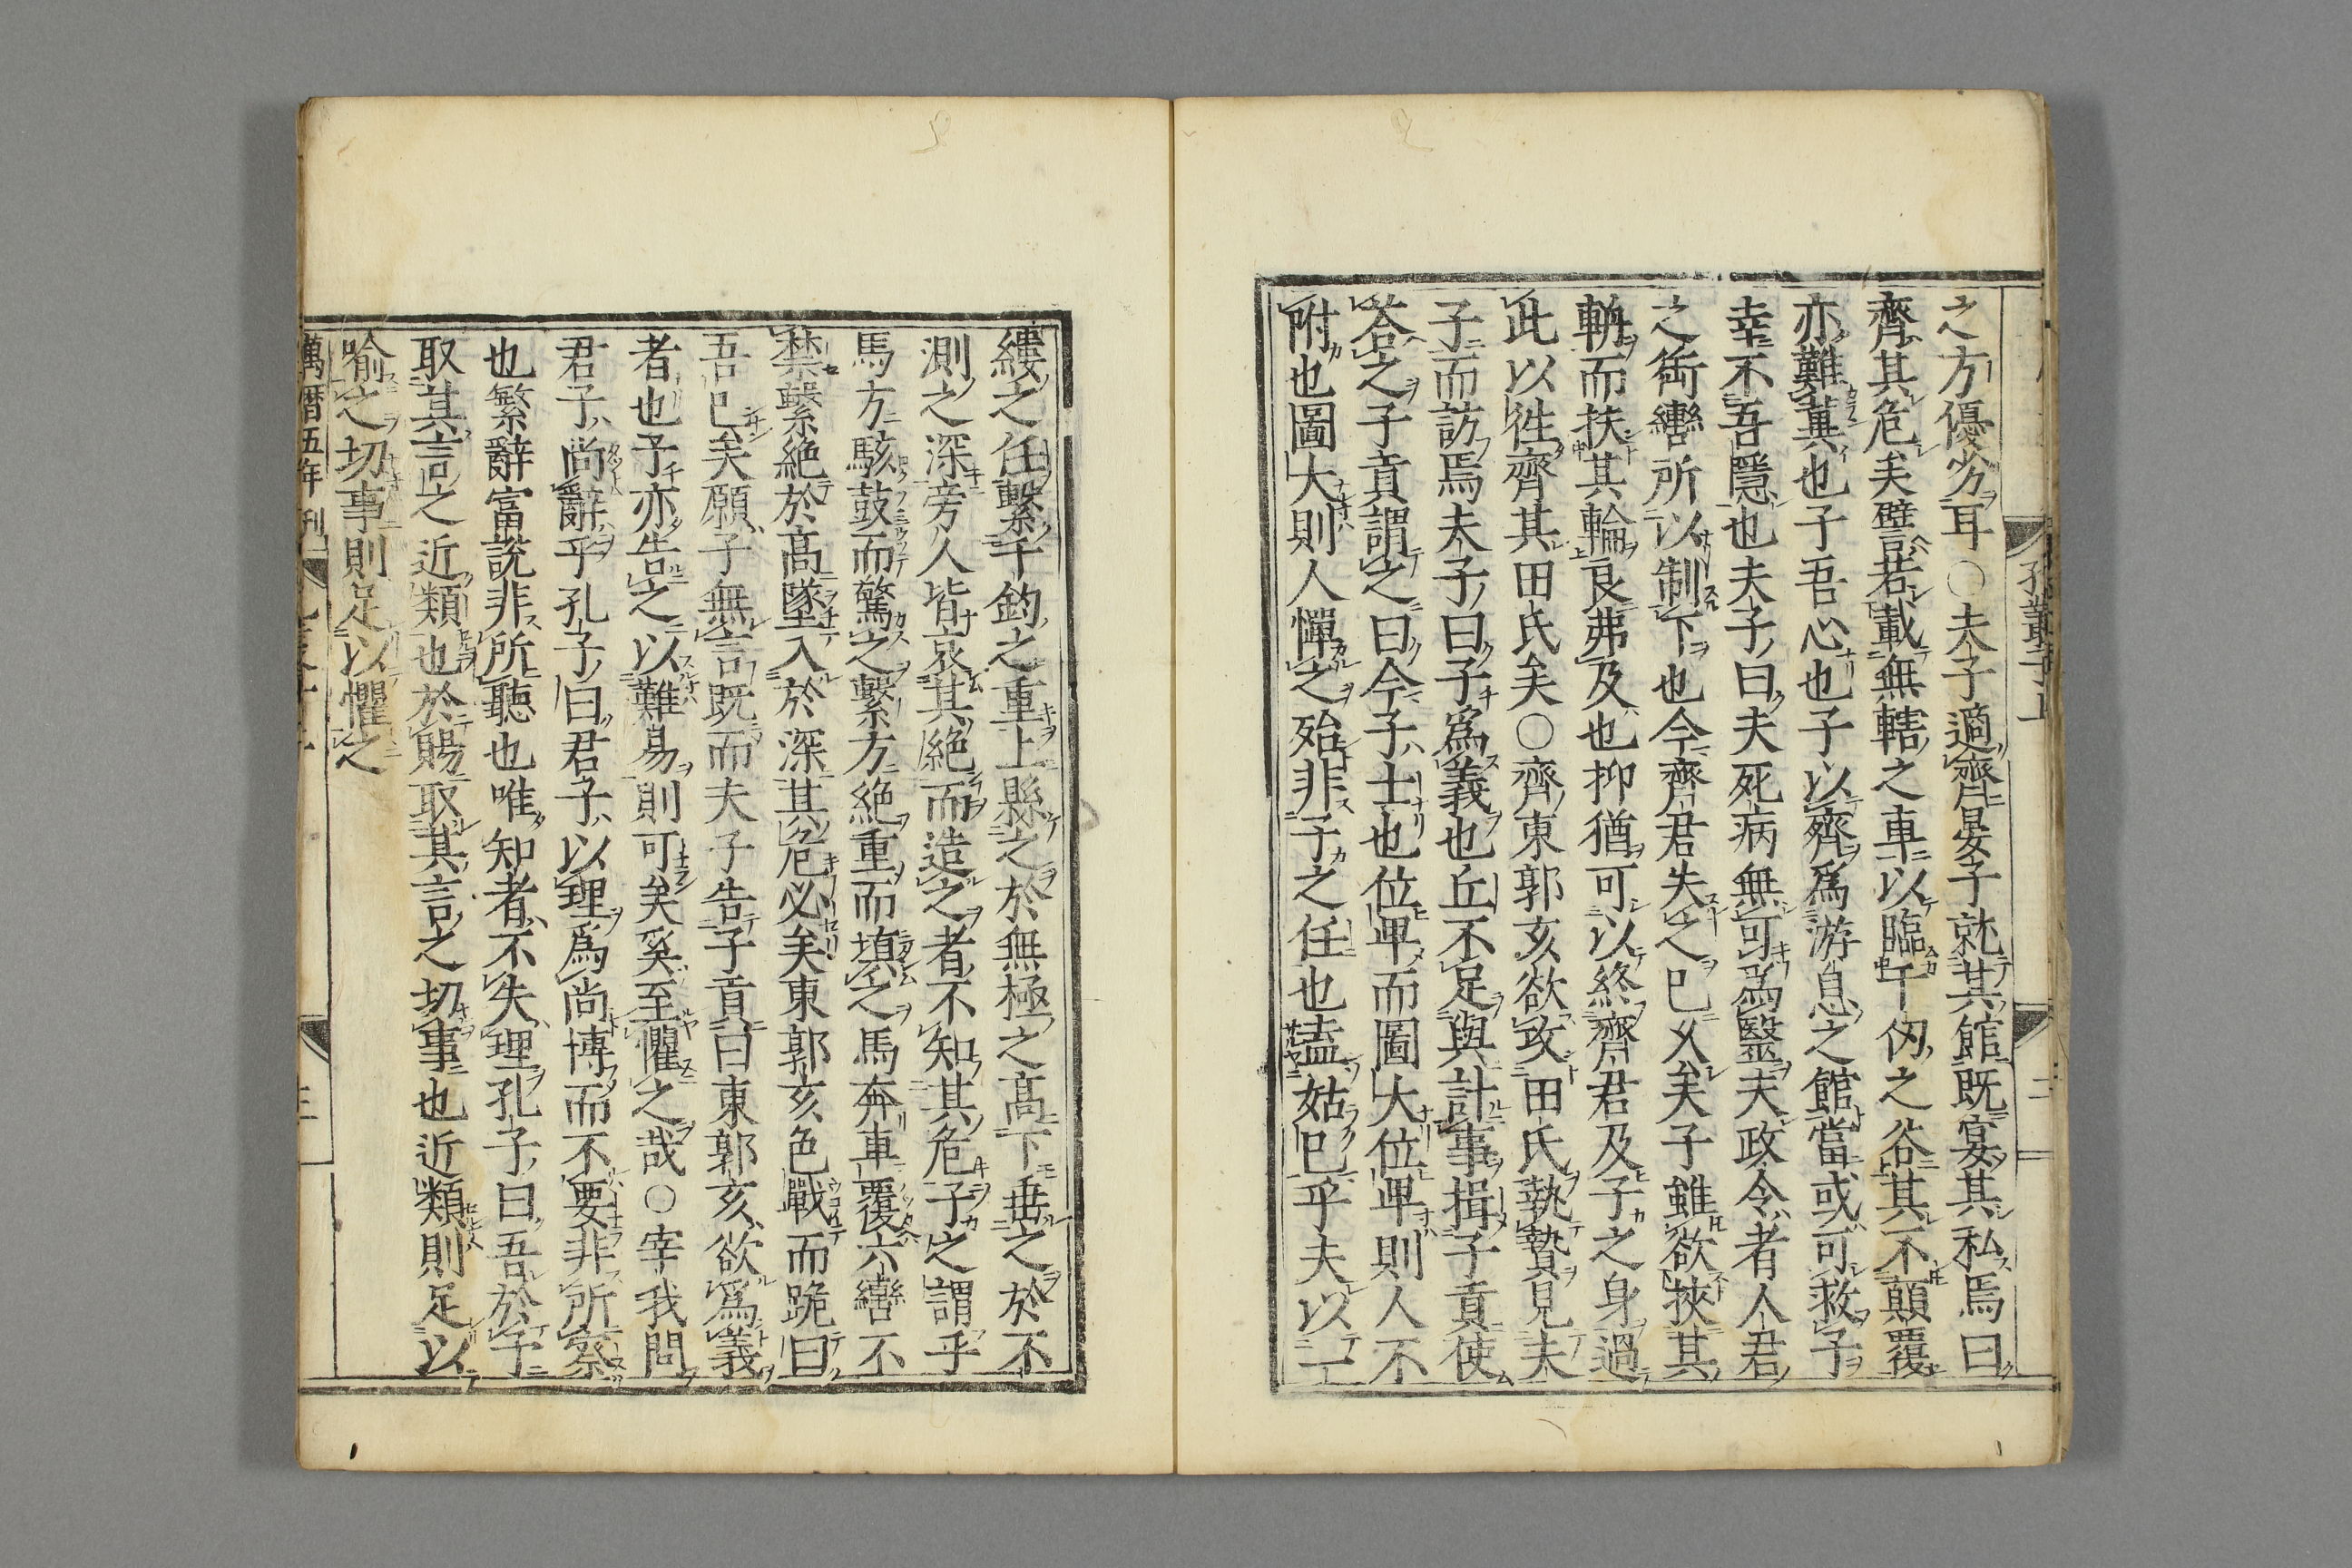 之方優劣耳○夫子適齊晏子就其館既宴其私焉曰
齊其危矣譬若載無轄之車以臨千仞之谷其不顛覆
亦難兾也子吾心也子以齊爲游息之館當或可救子
幸不吾隱也夫子曰夫死病無可爲醫夫政令者人君
之銜轡所以制下也今齊君失之已乆矣子雖欲挾其
輈而扶其輪良弗及也抑猶可以終齊君及子之身過
此以徃齊其田氏矣○齊東郭亥欲攻田氏執贄見夫
子而訪焉夫子曰子爲義也丘不足與計事揖子貢使
荅之子貢謂之曰今子士也位卑而圖大位卑則人不
附也圖大則人憚之殆非子之任也盍姑已乎夫以一
縷之任繫千鈞之重上縣之於無極之髙下垂之於不
測之深旁人皆哀其絶而造之者不知其危子之謂乎
馬方駭鼓而驚之繫方絶重而填之馬奔車覆六轡不
禁繫絶於髙墜入於深其危必矣東郭亥色戰而跪曰
吾已矣願子無言既而夫子告子貢曰東郭亥欲爲義
者也子亦告之以難易則可矣奚至懼之哉○宰我問
君子尚辭乎孔子曰君子以理爲尚博而不要非所察
也繁辭富說非所聽也唯知者不失理孔子曰吾於予
取其言之近類也於賜取其言之切事也近類則足以
喻之切事則足以懼之